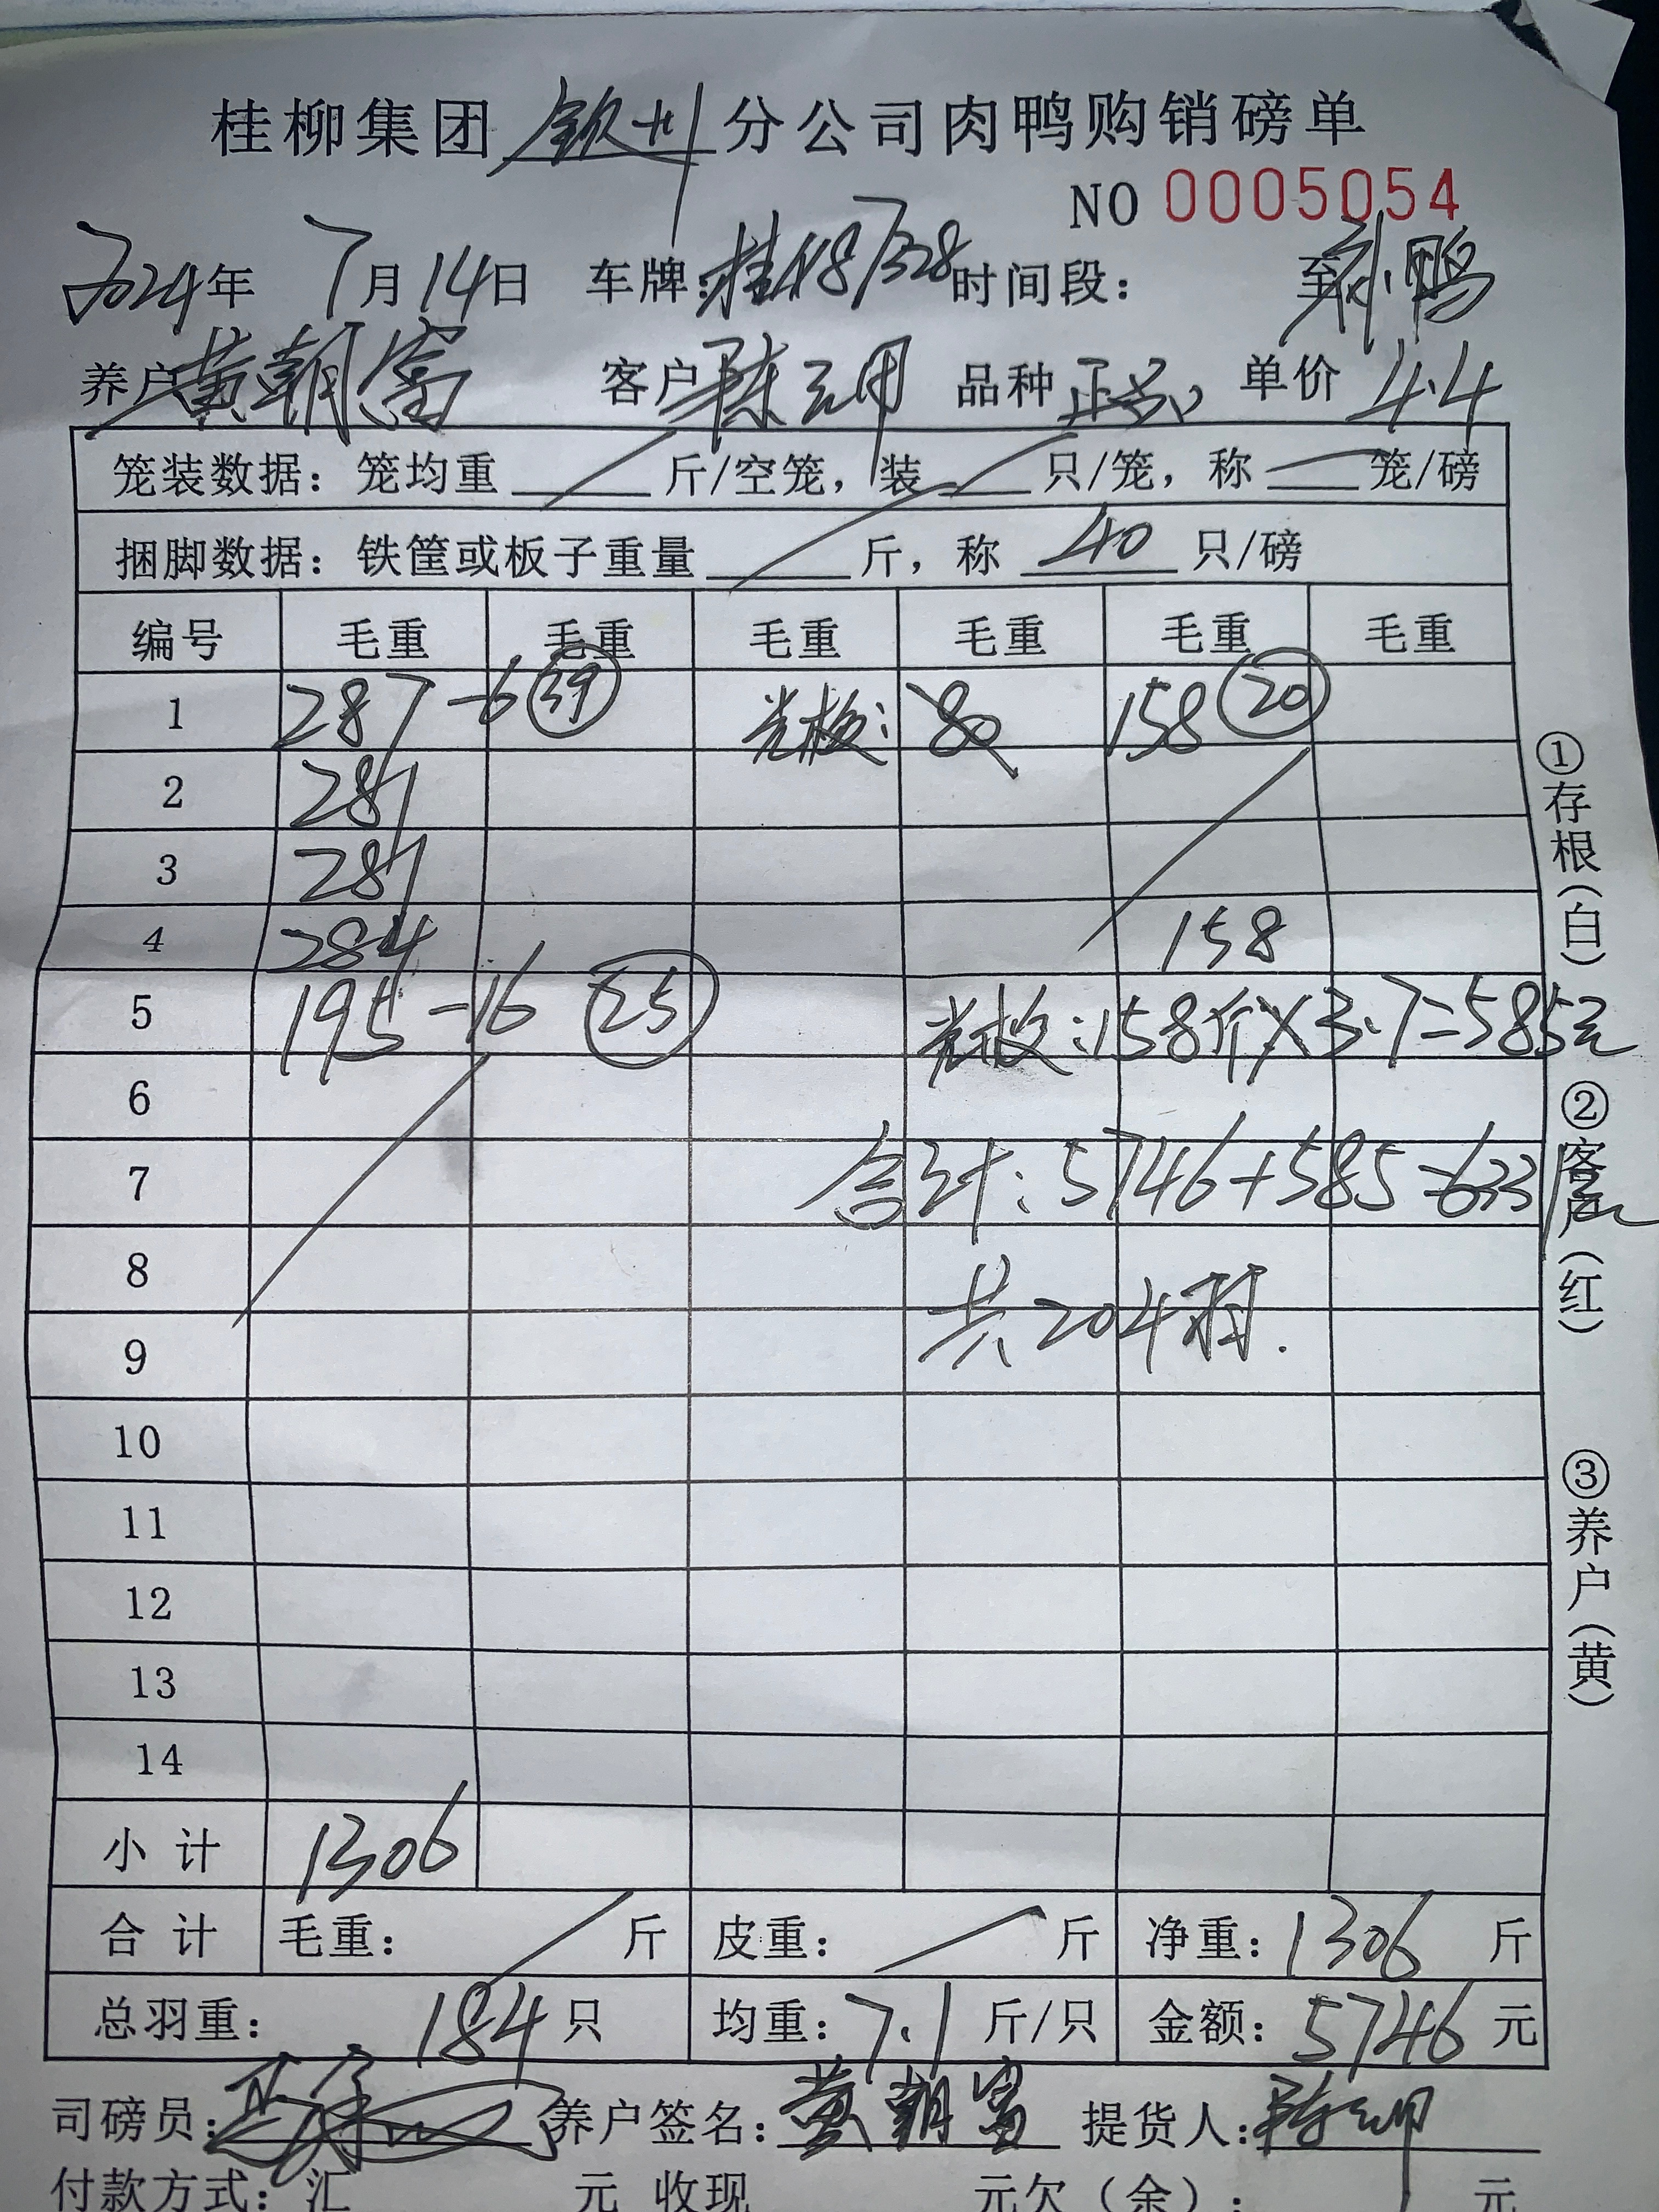 桂柳集团 钦州 分公司肉鸭购销磅单
NO 0005054
2024年 7月14日 车牌:桂N87328 时间段: 至
养户 黄朝富 客户 陈 品种 正 单价 4.4
笼装数据:笼均重 斤/空笼,装 只/笼,称 笼/磅
捆脚数据:铁筐或板子重量 斤,称 40 只/磅
编号 毛重 毛重 毛重 毛重 毛重 毛重
1 287-6 39 光板: 80 158 20
2 287
3 287
4 284 158
5 195-16 25 光板:158斤×3.7=585元
6
7 合计:5746+585=6331元
8 共204
9
10
11
12
13
14
小计 1306
合计 毛重: 斤 皮重: 斤 净重:1306 斤
总羽重: 184 只 均重:7.1 斤/只 金额:5746 元
司磅员: 养户签名:黄朝富 提货人:陈
付款方式:汇 元 收现 元欠(余): 元
①存根(白)
②客户(红)
③养户(黄)